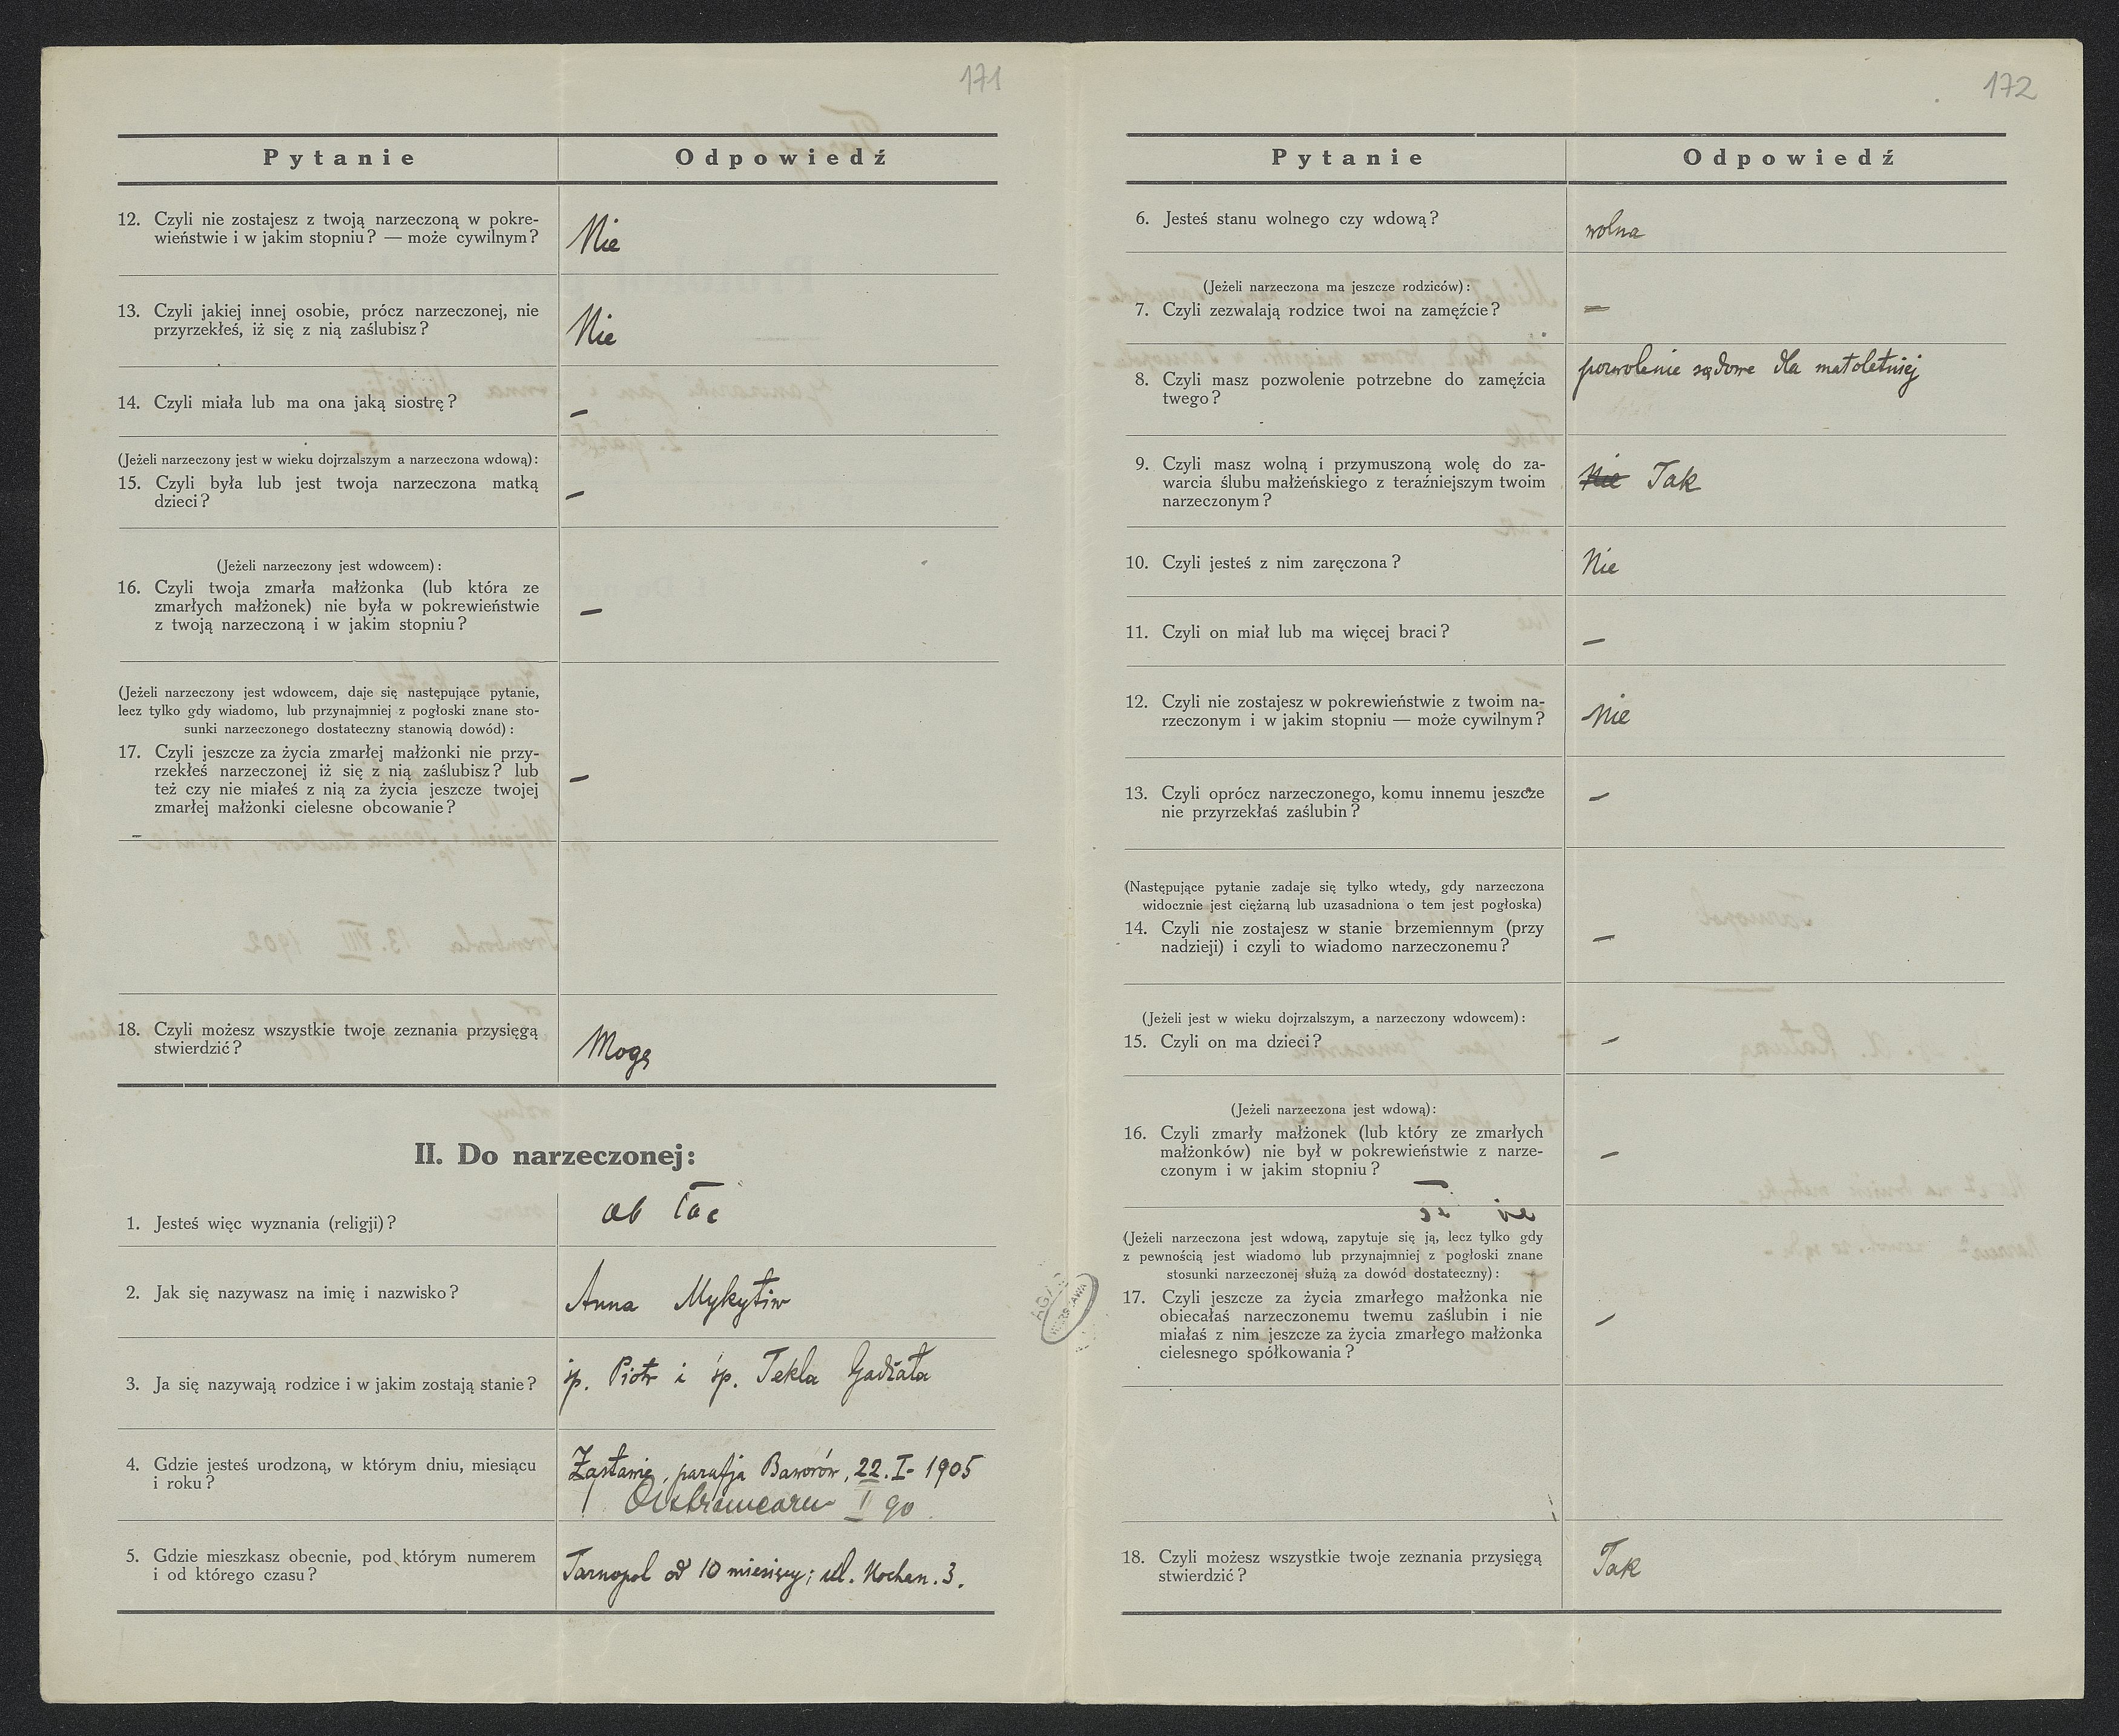 171
Pytanie Odpowiedź
12. Czyli nie zostajesz z twoją narzeczoną w pokre-
wieństwie i w jakim stopniu? — może cywilnym?
Nie
13. Czyli jakiej innej osobie, prócz narzeczonej, nie
przyrzekłeś, iż się z nią zaślubisz?
Nie
14. Czyli miała lub ma ona jaką siostrę?
—
(Jeżeli narzeczony jest w wieku dojrzalszym a narzeczona wdową):
15. Czyli była lub jest twoja narzeczona matką
dzieci?
—
(Jeżeli narzeczony jest wdowcem):
16. Czyli twoja zmarła małżonka (lub która ze
zmarłych małżonek) nie była w pokrewieństwie
z twoją narzeczoną i w jakim stopniu?
—
(Jeżeli narzeczony jest wdowcem, daje się następujące pytanie,
lecz tylko gdy wiadomo, lub przynajmniej z pogłoski znane sto-
sunki narzeczonego dostateczny stanowią dowód):
17. Czyli jeszcze za życia zmarłej małżonki nie przy-
rzekłeś narzeczonej iż się z nią zaślubisz? lub
też czy nie miałeś z nią za życia jeszcze twojej
zmarłej małżonki cielesne obcowanie?
—
18. Czyli możesz wszystkie twoje zeznania przysięgą
stwierdzić?
Mogę
II. Do narzeczonej:
1. Jesteś więc wyznania (religji)?
ob łac
2. Jak się nazywasz na imię i nazwisko?
Anna Mykytiw
3. Ja się nazywają rodzice i w jakim zostają stanie?
śp. Piotr i śp. Tekla Gadzała
4. Gdzie jesteś urodzoną, w którym dniu, miesiącu
i roku?
parafja Baworów, 22. I- 1905
5. Gdzie mieszkasz obecnie, pod którym numerem
i od którego czasu?
Tarnopol od 10 miesięcy; ul. Kochan. 3.
172
Pytanie Odpowiedź
6. Jesteś stanu wolnego czy wdową?
wolna
(Jeżeli narzeczona ma jeszcze rodziców):
7. Czyli zezwalają rodzice twoi na zamęźcie?
—
8. Czyli masz pozwolenie potrzebne do zamęźcia
twego?
pozwolenie sądowe dla małoletniej
9. Czyli masz wolną i przymuszoną wolę do za-
warcia ślubu małżeńskiego z teraźniejszym twoim
narzeczonym?
Nie Tak
10. Czyli jesteś z nim zaręczona?
Nie
11. Czyli on miał lub ma więcej braci?
—
12. Czyli nie zostajesz w pokrewieństwie z twoim na-
rzeczonym i w jakim stopniu — może cywilnym?
Nie
13. Czyli oprócz narzeczonego, komu innemu jeszcze
nie przyrzekłaś zaślubin?
—
(Następujące pytanie zadaje się tylko wtedy, gdy narzeczona
widocznie jest ciężarną lub uzasadniona o tem jest pogłoska)
14. Czyli nie zostajesz w stanie brzemiennym (przy
nadzieji) i czyli to wiadomo narzeczonemu?
—
(Jeżeli jest w wieku dojrzalszym, a narzeczony wdowcem):
15. Czyli on ma dzieci?
—
(Jeżeli narzeczona jest wdową):
16. Czyli zmarły małżonek (lub który ze zmarłych
małżonków) nie był w pokrewieństwie z narze-
czonym i w jakim stopniu?
—
(Jeżeli narzeczona jest wdową, zapytuje się ją, lecz tylko gdy
z pewnością jest wiadomo lub przynajmniej z pogłoski znane
stosunki narzeczonej służą za dowód dostateczny):
17. Czyli jeszcze za życia zmarłego małżonka nie
obiecałaś narzeczonemu twemu zaślubin i nie
miałaś z nim jeszcze za życia zmarłego małżonka
cielesnego spółkowania?
—
18. Czyli możesz wszystkie twoje zeznania przysięgą
stwierdzić?
Tak